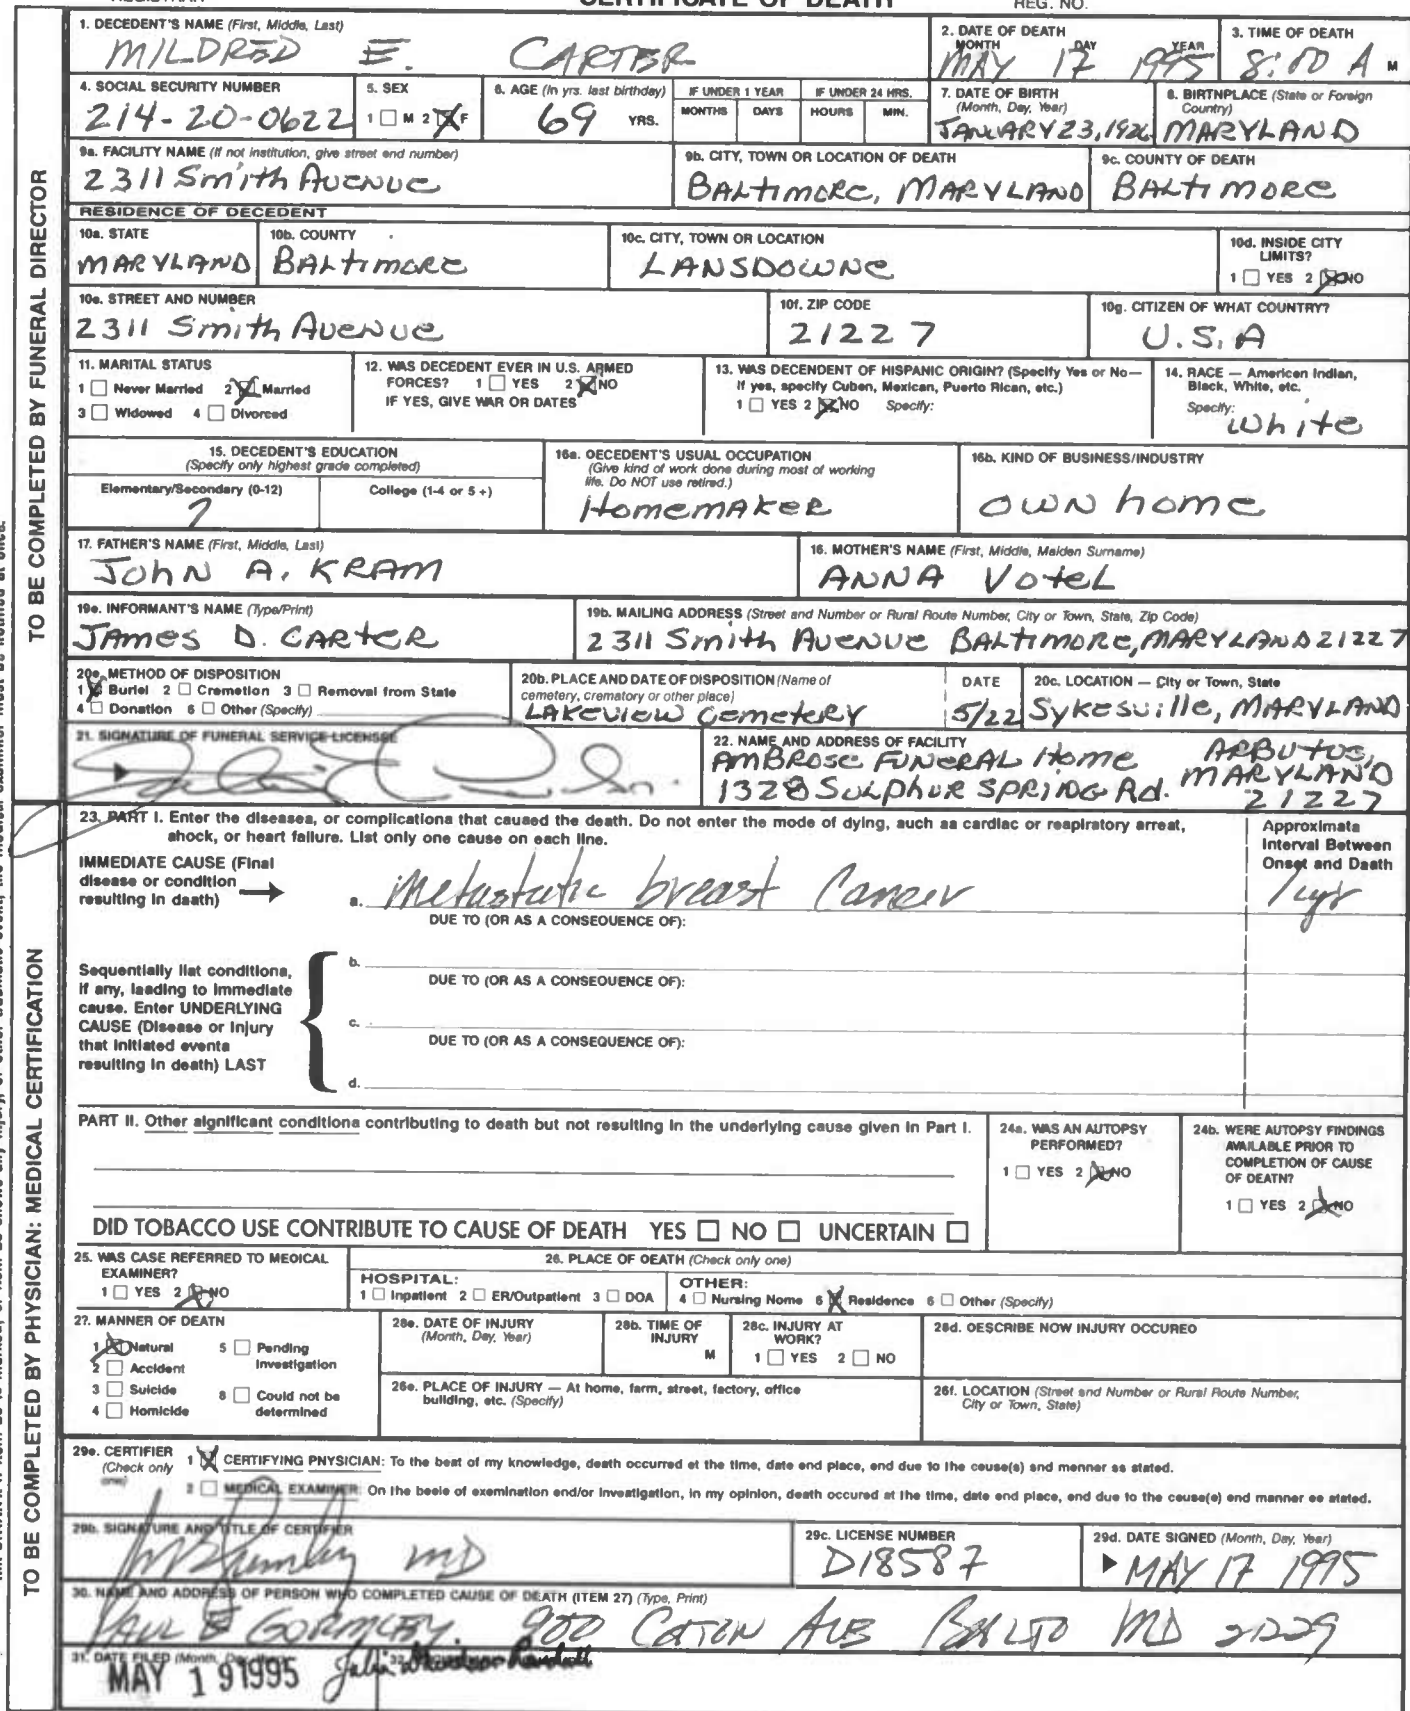 CERTIFICATE OF DEATH
REG. NO.
TO BE COMPLETED BY FUNERAL DIRECTOR
1. DECEDENT'S NAME (First, Middle, Last)
MILDRED E. CARTER
2. DATE OF DEATH
MONTH DAY YEAR
MAY 17 1995
3. TIME OF DEATH
8:00 A M
4. SOCIAL SECURITY NUMBER
214-20-0622
5. SEX
1 M 2 F
6. AGE (In yrs. last birthday)
69 YRS.
IF UNDER 1 YEAR
MONTHS DAYS
IF UNDER 24 HRS.
HOURS MIN.
7. DATE OF BIRTH
(Month, Day, Year)
JANUARY 23, 1926
8. BIRTHPLACE (State or Foreign
Country)
MARYLAND
9a. FACILITY NAME (If not institution, give street end number)
2311 Smith AVENUE
9b. CITY, TOWN OR LOCATION OF DEATH
BALTIMORE, MARYLAND
9c. COUNTY OF DEATH
BALTIMORE
RESIDENCE OF DECEDENT
10a. STATE
MARYLAND
10b. COUNTY
BALTIMORE
10c. CITY, TOWN OR LOCATION
LANSDOWNE
10d. INSIDE CITY
LIMITS?
1 YES 2 NO
10e. STREET AND NUMBER
2311 Smith AVENUE
10f. ZIP CODE
21227
10g. CITIZEN OF WHAT COUNTRY?
U.S.A
11. MARITAL STATUS
1 Never Married 2 Married
3 Widowed 4 Divorced
12. WAS DECEDENT EVER IN U.S. ARMED
FORCES? 1 YES 2 NO
IF YES, GIVE WAR OR DATES
13. WAS DECENDENT OF HISPANIC ORIGIN? (Specify Yes or No—
If yes, specify Cuben, Mexican, Puerto Rican, etc.)
1 YES 2 NO Specify:
14. RACE — American Indian,
Black, White, etc.
Specify:
White
15. DECEDENT'S EDUCATION
(Specify only highest grade completed)
Elementary/Secondary (0-12)
7
College (1-4 or 5 +)
16a. OECEDENT'S USUAL OCCUPATION
(Give kind of work done during most of working
life. Do NOT use retired.)
HomemAKER
16b. KIND OF BUSINESS/INDUSTRY
OWN home
17. FATHER'S NAME (First, Middle, Last)
JOHN A. KRAM
16. MOTHER'S NAME (First, Middle, Malden Surname)
ANNA VoteL
19e. INFORMANT'S NAME (Type/Print)
JAMES D. CARTER
19b. MAILING ADDRESS (Street and Number or Rural Route Number, City or Town, State, Zip Code)
2311 Smith AVENUE BALTIMORE, MARYLAND 21227
20e. METHOD OF DISPOSITION
1 Buriel 2 Cremetion 3 Removal from State
4 Donation 6 Other (Specify)
20b. PLACE AND DATE OF DISPOSITION (Name of
cemetery, crematory or other place)
LAKEVIEW CEMETERY
DATE
5/22
20c. LOCATION — City or Town, State
Sykesville, MARYLAND
21. SIGNATURE OF FUNERAL SERVICE LICENSEE
22. NAME AND ADDRESS OF FACILITY
AMBROSE FUNERAL HOME ARBUTUS,
1328 SULPHUR SPRING Rd. MARYLAND
21227
TO BE COMPLETED BY PHYSICIAN: MEDICAL CERTIFICATION
23. PART I. Enter the diseases, or complicationa that cauaed the death. Do not enter the mode of dying, auch aa cardlac or reapiratory arreat,
ahock, or heart failure. List only one cause on each line.
IMMEDIATE CAUSE (Final
disease or condition
resulting in daath)
a. Metastatic breast Cancer
Approximata
Interval Between
Onset and Daath
1 yr
DUE TO (OR AS A CONSEQUENCE OF):
Sequentially liat conditiona,
if any, laading to immediate
cause. Enter UNDERLYING
CAUSE (Disease or Injury
that initiated eventa
resulting in death) LAST
b.
DUE TO (OR AS A CONSEQUENCE OF):
c.
DUE TO (OR AS A CONSEQUENCE OF):
d.
PART II. Other aignificant conditiona contributing to death but not resulting in the underlying cause given in Part I.
24a. WAS AN AUTOPSY
PERFORMED?
1 YES 2 NO
24b. WERE AUTOPSY FINDINGS
AVAILABLE PRIOR TO
COMPLETION OF CAUSE
OF DEATN?
1 YES 2 NO
DID TOBACCO USE CONTRIBUTE TO CAUSE OF DEATH YES NO UNCERTAIN
25. WAS CASE REFERRED TO MEDICAL
EXAMINER?
1 YES 2 NO
26. PLACE OF OEATH (Check only one)
HOSPITAL:
1 Inpatient 2 ER/Outpatient 3 DOA
OTHER:
4 Nursing Nome 5 Residence 6 Other (Specify)
27. MANNER OF DEATH
1 Natural 5 Pending
Investigation
2 Accident
3 Suicide 8 Could not be
determined
4 Homicide
28e. DATE OF INJURY
(Month, Day, Year)
28b. TIME OF
INJURY
M
28c. INJURY AT
WORK?
1 YES 2 NO
28d. OESCRIBE NOW INJURY OCCURED
26e. PLACE OF INJURY — At home, farm, street, factory, office
building, etc. (Specify)
26f. LOCATION (Street and Number or Rural Route Number,
City or Town, State)
29e. CERTIFIER
(Check only
one)
1 CERTIFYING PNYSICIAN: To the beat of my knowledge, death occurred et the time, date end place, end due to the ceuse(s) and menner as stated.
2 MEDICAL EXAMINER: On the beele of exeminetion end/or Investigation, in my opinion, death occured at the time, date end place, end due to the ceuse(e) end manner ee atated.
29b. SIGNATURE AND TITLE OF CERTIFIER
MD
29c. LICENSE NUMBER
D18587
29d. DATE SIGNED (Month, Day, Year)
MAY 17 1995
30. NAME AND ADDRESS OF PERSON WHO COMPLETED CAUSE OF DEATH (ITEM 27) (Type, Print)
PAUL E GORMLEY. 900 CATON AVE BALTO MD 21229
31. DATE FILED (Month, Day, Year)
MAY 19 1995
32.